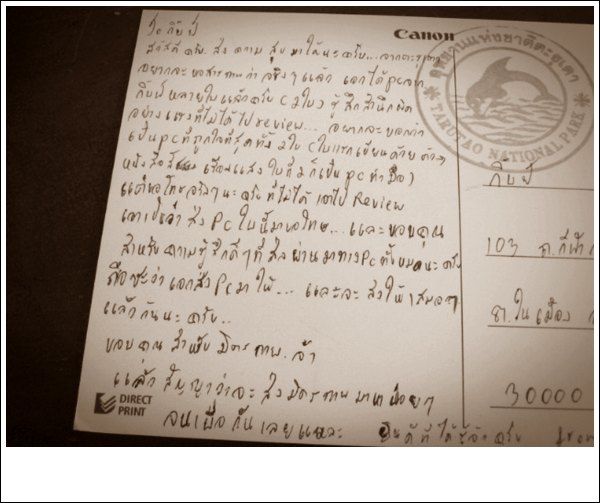 Canon
สวัสดี ครับ. ส่ง ความ สุข มาให้นะครับ...จากตะรุเตา
อยากจะ ขอสารภาพว่า จริงๆแล้ว เอกได้ pcจาก
กิ๊บปี้ หลายใบ แล้วครับ ( 2 ใบ ) รู้สึกสำนึกผิด
อย่างแรงที่ไม่ได้ไป review... อยากจะบอกว่า
เป็น pc ที่ถูกใจที่สุดทั้ง 2 ใบ ใบแรกเขียนด้วย
หนังสือ ใบที่ 2 ก็เป็น pc ทำมือ
แต่ขอโทษจริงๆนะ ครับ ที่ไม่ได้ เอาไป Review
ส่ง Pc ใบนี้มาขอโทษ...และขอบคุณ
สำหรับ ความรู้สึกดีๆ ที่ส่งผ่านมาทางPcทั้งหมดนะครับ
ถือซะว่า เอกส่ง Pcมาให้... และจะ ส่งให้เสมอๆ
แล้วกันนะครับ..
ขอบ คุณ สำหรับ มิตรภาพ. จ้า
แล้ว สัญญาว่าจะ ส่งมิตรภาพมาหาบ่อยๆ
จนเบื่อกันเลยแหละ
ยินดีที่ได้รู้จักครับ
อุทยานแห่งชาติตะรุเตา
TARUTAO NATIONAL PARK
กิ๊บปี้
103 ถ.กีฬา
ต.ในเมือง
30000
DIRECT
PRINT